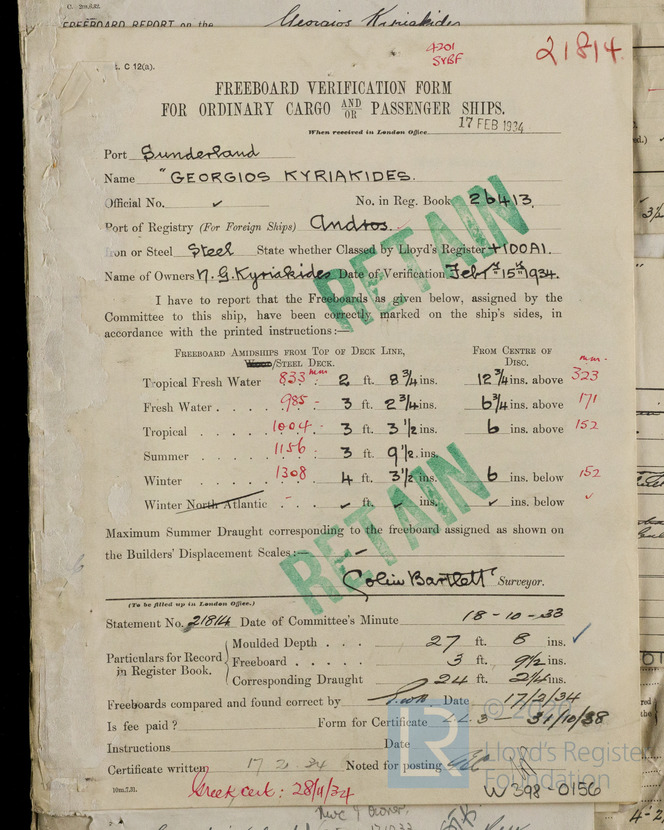 C. 20.6.32.
FREEBOARD REPORT on the Georgios Kyriakides
L. C 12(a).
4201
SYBF
21814
FREEBOARD VERIFICATION FORM
FOR ORDINARY CARGO AND/OR PASSENGER SHIPS.
When received in London Office 17 FEB 1934
Port Sunderland
Name "GEORGIOS KYRIAKIDES.
Official No. ✓ No. in Reg. Book 26413.
Port of Registry (For Foreign Ships) Andros.
Iron or Steel Steel State whether Classed by Lloyd's Register +100A1.
Name of Owners N. G. Kyriakides Date of Verification Feby 15th 1934.
RETAIN
I have to report that the Freeboards as given below, assigned by the
Committee to this ship, have been correctly marked on the ship's sides, in
accordance with the printed instructions:—
FREEBOARD AMIDSHIPS FROM TOP OF DECK LINE, FROM CENTRE OF
WOOD/STEEL DECK. DISC.
mm mm.
Tropical Fresh Water 833 2 ft. 8 3/4 ins. 12 3/4 ins. above 323
Fresh Water 985 3 ft. 2 3/4 ins. 6 3/4 ins. above 171
Tropical 1004 3 ft. 3 1/2 ins. 6 ins. above 152
Summer 1156 3 ft. 9 1/2 ins.
Winter 1308 4 ft. 3 1/2 ins. 6 ins. below 152
Winter North Atlantic - ✓ ft. ✓ ins. ✓ ins. below ✓
RETAIN
Maximum Summer Draught corresponding to the freeboard assigned as shown on
the Builders' Displacement Scales:— —
Colin Bartlett Surveyor.
(To be filled up in London Office.)
Statement No. 21814 Date of Committee's Minute 18-10-33
Particulars for Record in Register Book.
Moulded Depth 27 ft. 8 ins. ✓
Freeboard 3 ft. 9 1/2 ins.
Corresponding Draught 24 ft. 2 1/4 ins.
Freeboards compared and found correct by Date 17/2/34
Is fee paid? Form for Certificate 31/10/38
Instructions Date
Certificate written 17 2. 34 Noted for posting
10m.7.31.
Greek cert: 28/4/34
W398-0156
© 2026
Lloyd's Register
Foundation
LR